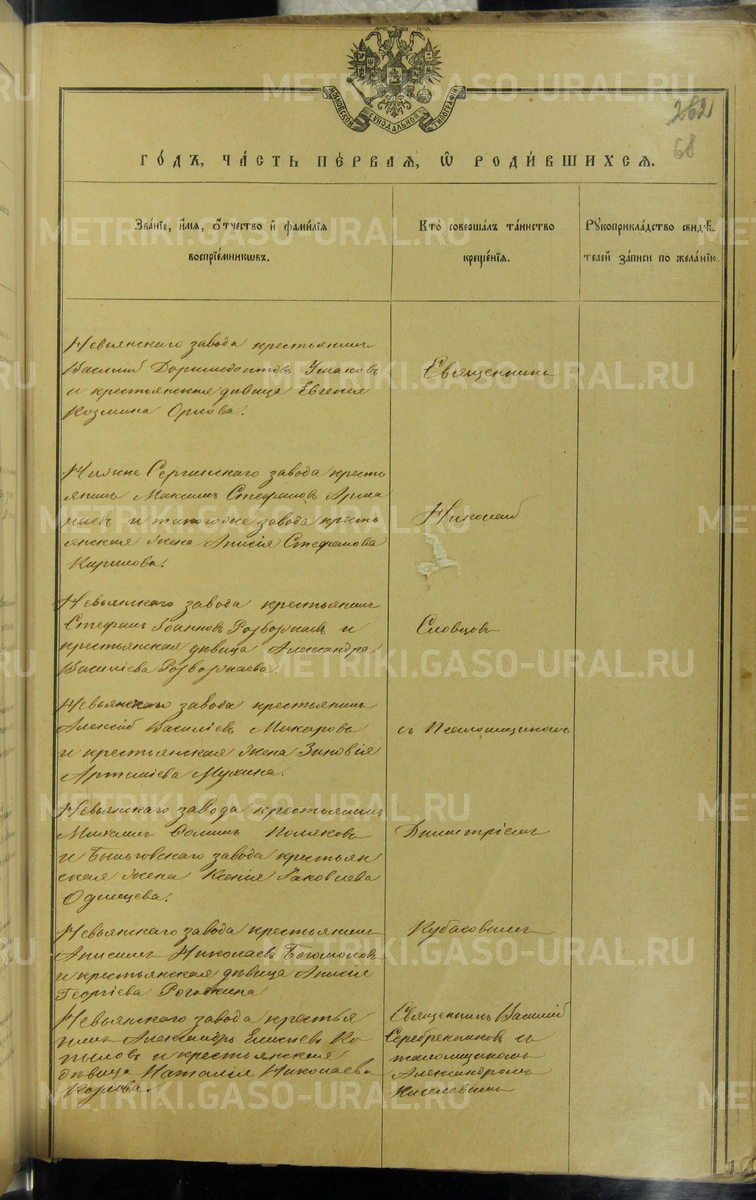 МОСКОВСКОЙ СѴНОДАЛЬНОЙ ТИПОГРАФІИ
262
68
ГО́ДЪ, ЧА́СТЬ ПЕ́РВАЯ, Ѽ РОДИ́ВШИХСЯ.
Зва́нїе, и́мя, о́тчество и҆ фами́лїя воспрїе́мниковъ.
Кто̀ соверша́лъ та́инство креще́нїя.
Рꙋкоприкла́дство свидѣ́телей за́писи по жела́нїю.
Невьянскаго завода крестьянинъ
Василій Доримедонтовъ Ушаковъ
и крестьянская дѣвица Евгенія
Козмина Орлова.
Священникъ
Нижне Сергинскаго завода кресть
янинъ Максимъ Стефановъ
и тогоже завода кресть
янская жена Анисія Стефанова
Кирилова.
Николай
Невьянскаго завода крестьянинъ
Стефанъ Іоанновъ и
крестьянская дѣвица Александра
Василіева
Словцовъ
Невьянскаго завода крестьянинъ
Алексій Василіевъ Макаровъ
и крестьянская жена Зиновія
Артеміева Мухина.
съ Псаломщикомъ
Невьянскаго завода крестьянинъ
Михаилъ Поляковъ
и Быньговскаго завода крестьян
ская жена Ксенія Іаковлева
Одинцева.
Димитріемъ
Невьянскаго завода крестьянинъ
Анисимъ Николаевъ Богомоловъ
и крестьянская дѣвица Анисія
Георгіева Рогожкина
Кубасовымъ
Невьянскаго завода крестья
нинъ Александръ Елисѣевъ Ко
пыловъ и крестьянская
дѣвица Наталія Николаева
Козлова.
Священникъ Василій
Серебренниковъ съ
псаломщикомъ
Александромъ
Киселевымъ
METRIKI.GASO-URAL.RU